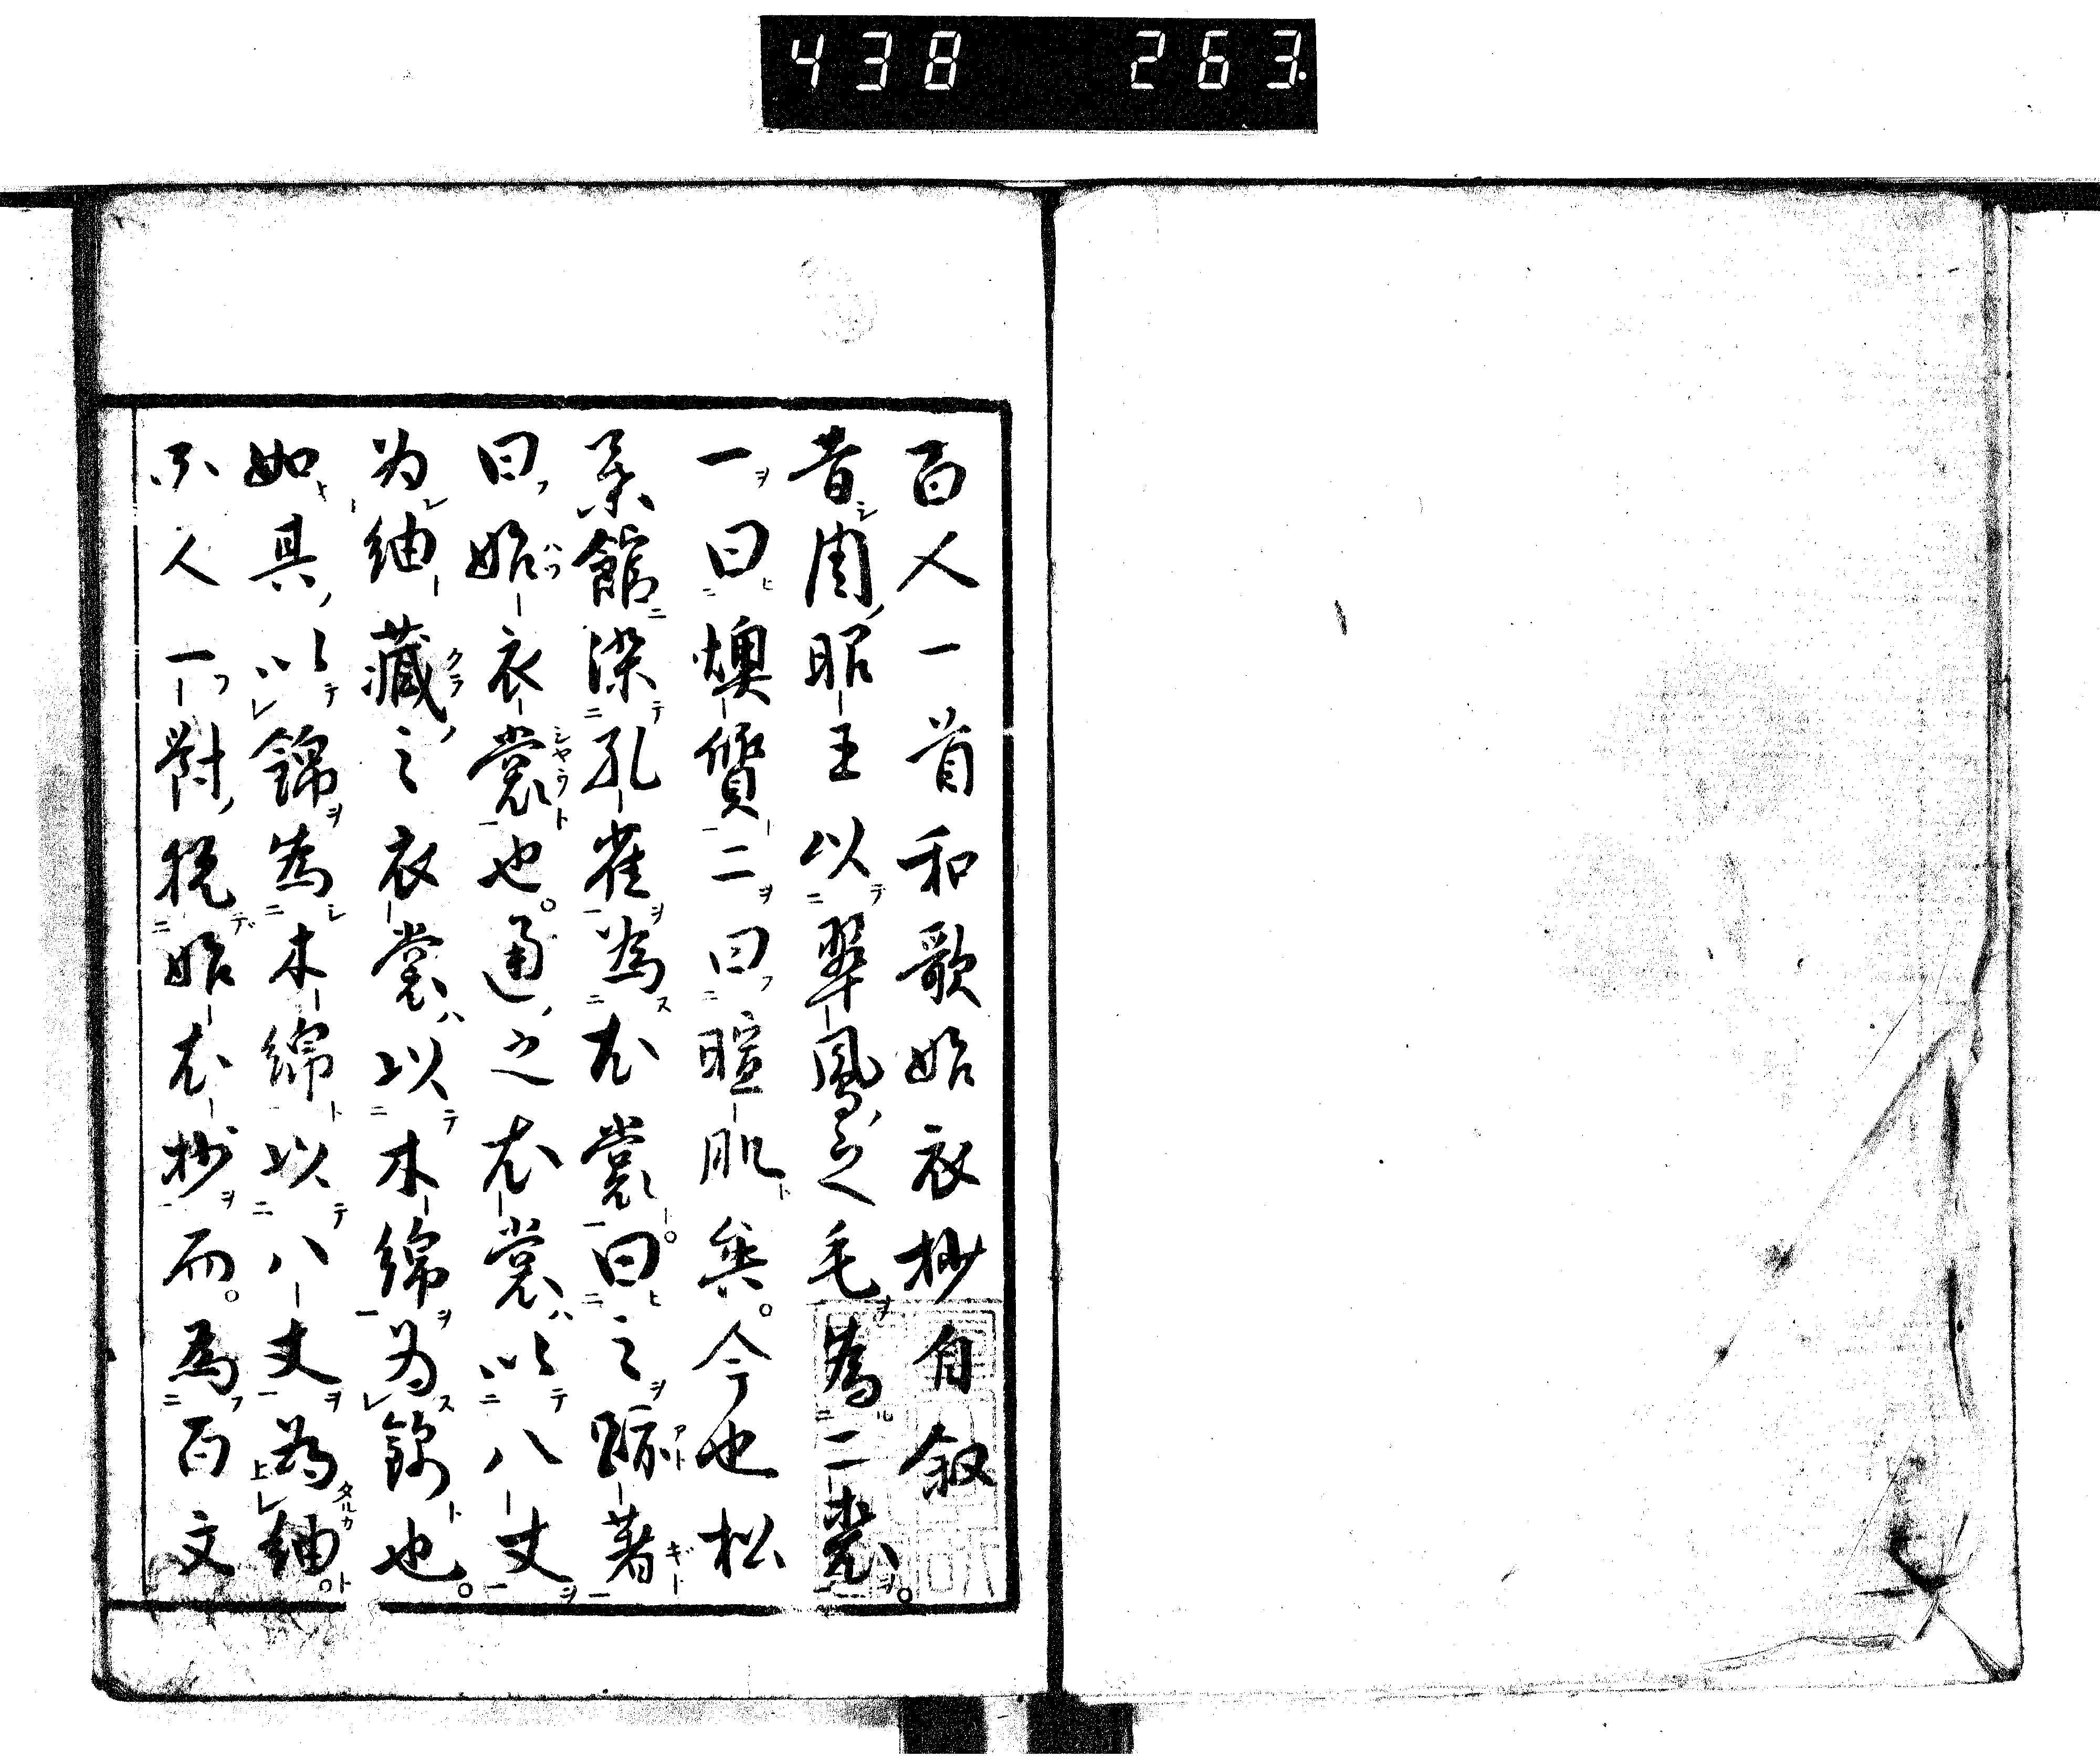 438 263.
百人一首和歌始衣抄自叙
昔周昭王以翠鳳之毛為二裘
一曰燠質二曰暄肌矣今也松
葉館染孔雀為衣裳曰之跡著
曰始衣裳也通之衣裳以八丈
为紬藏之衣裳以木綿为錦也
如其以錦為木綿以八丈為紬
不人一對於始衣抄而為百文